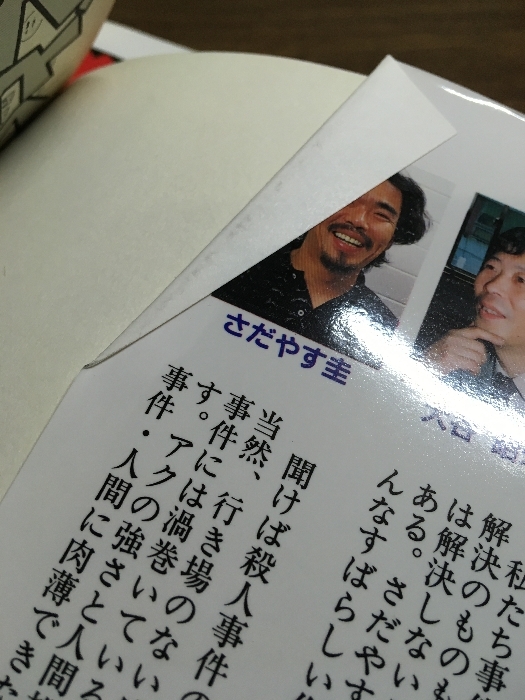 さだやす圭
私たち事
解決のものも
は解決しない
ある。さだやす
んなすばらしい
聞けば殺人事件の
当然、行き場のない
事件には渦巻いてい
す。アクの強さと人間
事件・人間に肉薄できた